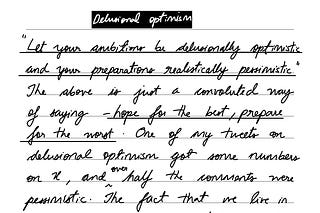 Delusional optimism
"Let your ambitions be delusionally optimistic
and your preparations realistically pessimistic"
The above is just a convoluted way
of saying - hope for the best, prepare
for the worst. One of my tweets on
delusional optimism got some numbers
on X, and over half the comments were
pessimistic. The fact that we live in